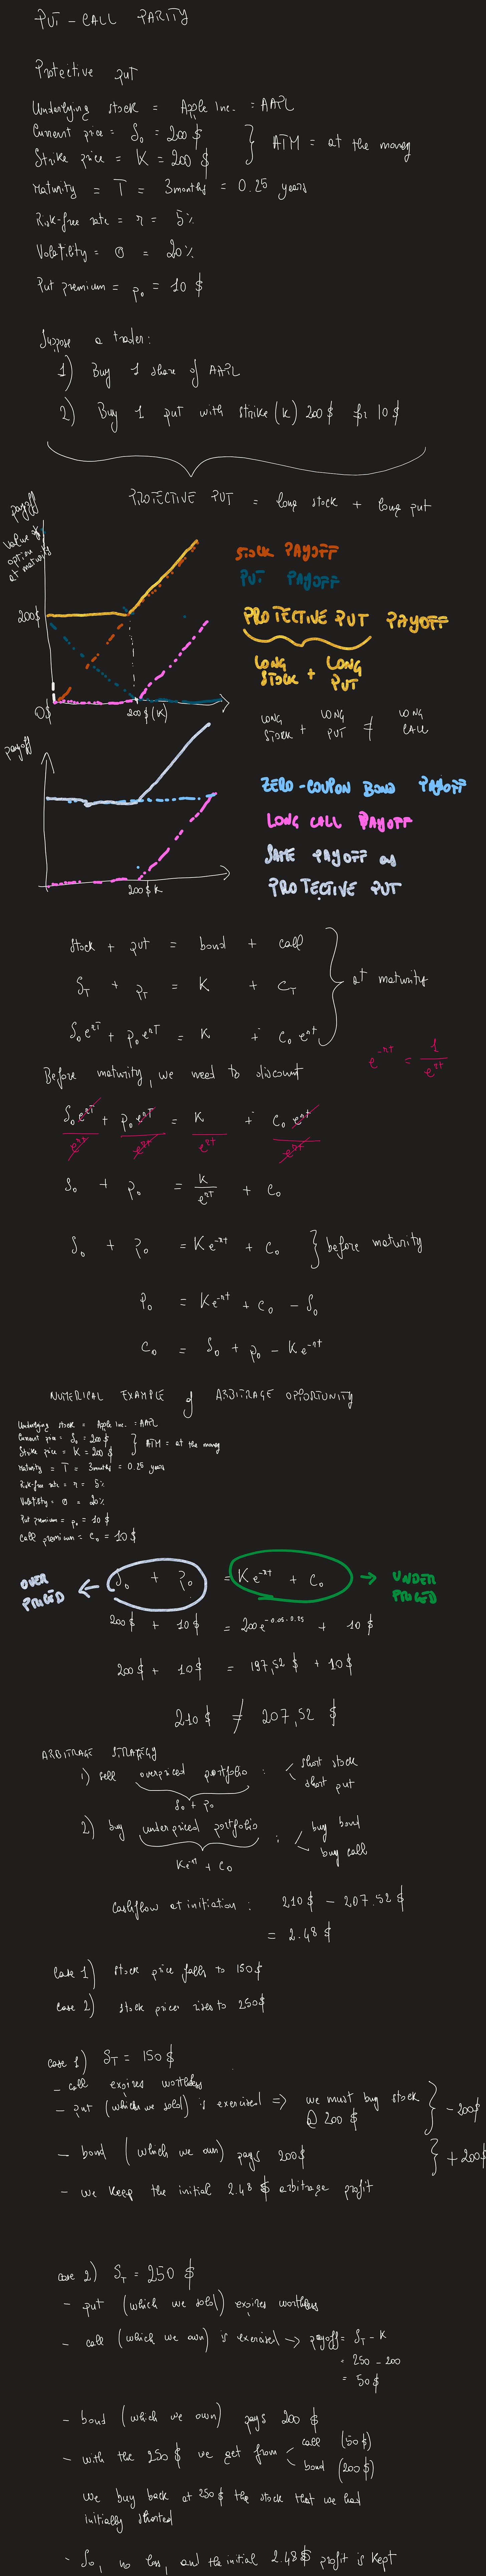 PUT - CALL PARITY
Protective put
Underlying stock = Apple Inc. = AAPL
Current price = S₀ = 200 $
Strike price = K = 200 $
} ATM = at the money
Maturity = T = 3 months = 0.25 years
Risk-free rate = r = 5%
Volatility = σ = 20%
Put premium = p₀ = 10 $
Suppose a trader:
1) Buy 1 share of AAPL
2) Buy 1 put with strike (K) 200$ for 10$
PROTECTIVE PUT = long stock + long put
payoff
value of
option
at maturity
200$
0$
200$ (K)
STOCK PAYOFF
PUT PAYOFF
PROTECTIVE PUT PAYOFF
LONG STOCK + LONG PUT
LONG STOCK + LONG PUT ≠ LONG CALL
payoff
200$ K
ZERO-COUPON BOND PAYOFF
LONG CALL PAYOFF
SAME PAYOFF as
PROTECTIVE PUT
stock + put = bond + call
S_T + p_T = K + C_T
} at maturity
S₀e^rT + p₀e^rT = K + C₀e^rT
e^-rT = 1/e^rT
Before maturity, we need to discount
S₀e^rT/e^rT + p₀e^rT/e^rT = K/e^rT + C₀e^rT/e^rT
S₀ + p₀ = K/e^rT + C₀
S₀ + p₀ = Ke^-rT + C₀ } before maturity
p₀ = Ke^-rT + C₀ - S₀
C₀ = S₀ + p₀ - Ke^-rT
NUMERICAL EXAMPLE of ARBITRAGE OPPORTUNITY
Underlying stock = Apple Inc. = AAPL
Current price = S₀ = 200$
Strike price = K = 200 $
} ATM = at the money
Maturity = T = 3 months = 0.25 years
Risk-free rate = r = 5%
Volatility = σ = 20%
Put premium = p₀ = 10 $
Call premium = C₀ = 10 $
OVER PRICED ← S₀ + p₀ = Ke^-rT + C₀ → UNDER PRICED
200$ + 10$ = 200e^-0.05·0.25 + 10$
200$ + 10$ = 197,52 $ + 10$
210$ ≠ 207,52 $
ARBITRAGE STRATEGY
1) sell overpriced portfolio : short stock
short put
S₀ + p₀
2) buy underpriced portfolio : buy bond
buy call
Ke^-rT + C₀
Cashflow at initiation : 210$ - 207.52$
= 2.48 $
Case 1) stock price falls to 150$
Case 2) stock prices rises to 250$
Case 1) S_T = 150$
- call expires worthless
- put (which we sold) is exercised => we must buy stock
@ 200 $
} - 200$
- bond (which we own) pays 200$ } + 200$
- we keep the initial 2.48 $ arbitrage profit
Case 2) S_T = 250 $
- put (which we sold) expires worthless
- call (which we own) is exercised → payoff = S_T - K
= 250 - 200
= 50$
- bond (which we own) pays 200 $
- with the 250 $ we get from call (50$)
bond (200$)
we buy back at 250 $ the stock that we had
initially shorted
- So, no loss, and the initial 2.48$ profit is kept